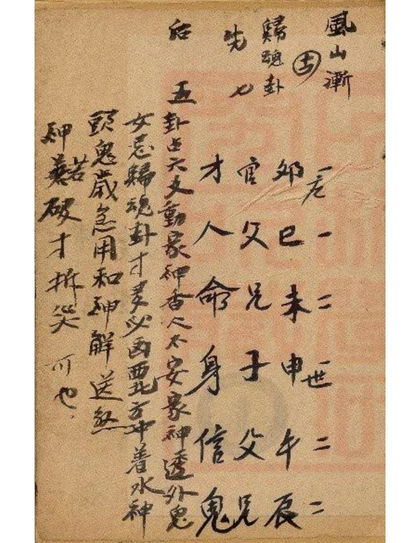 風山漸
歸魂卦
先七
后五
一应一二一世二二
卯巳未申午辰
官父兄子父兄
才人命身信鬼
卦占六爻動家神香火不安家神透外鬼
女忌歸魂卦才多必西北方中着水神
頭鬼歲急用和神解送煞
神若破才拆哭可也